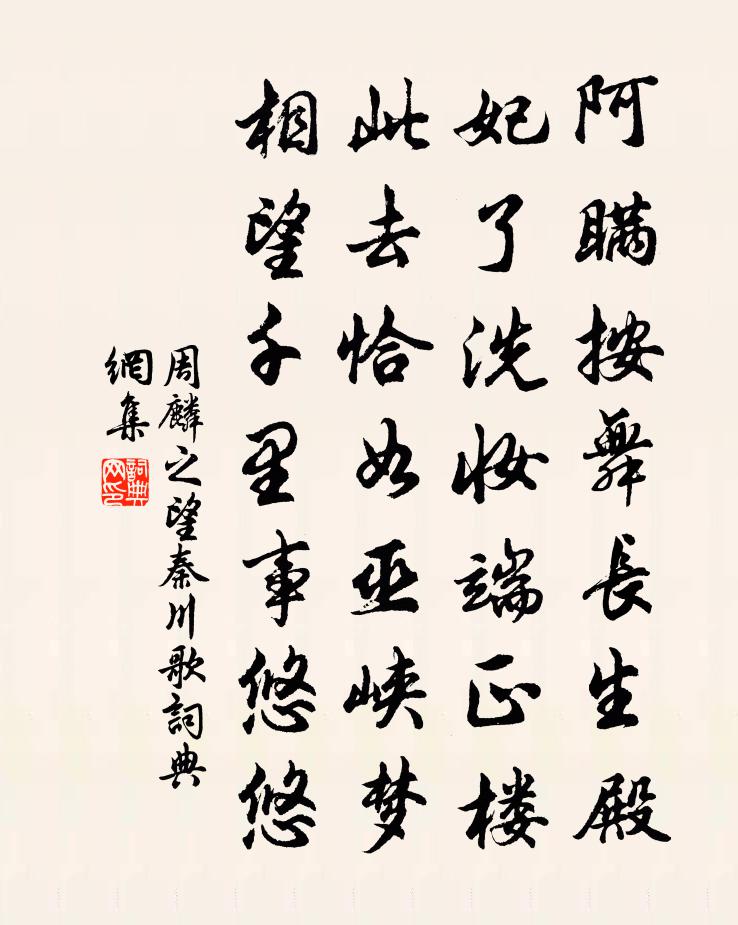 阿瞞按舞長生殿
妃子洗妆端正楼
此去恰如巫峡梦
相望千里事悠悠
周麟之望秦川歌詞典
網集
詞典网印